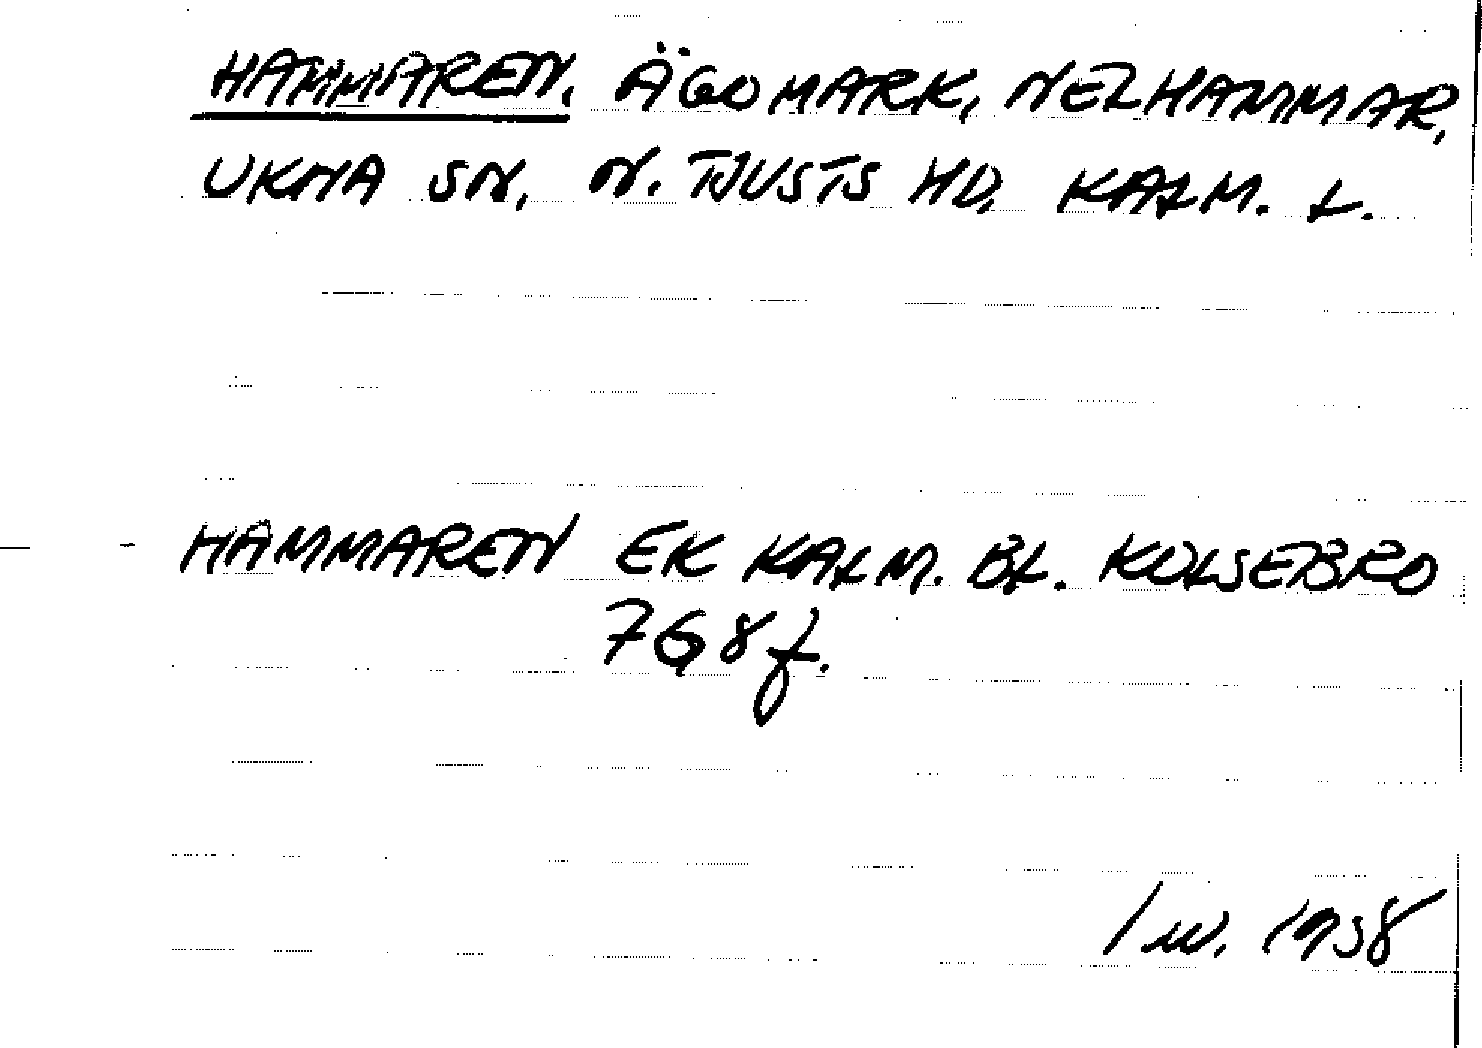 HAMMAREN. ÄGOMARK, NELHAMMAR,
UKNA SN, N. TJUSTS HD, KALM. L.
HAMMAREN EK KALM. BL. KOLSEBRO
7G8f.
1938